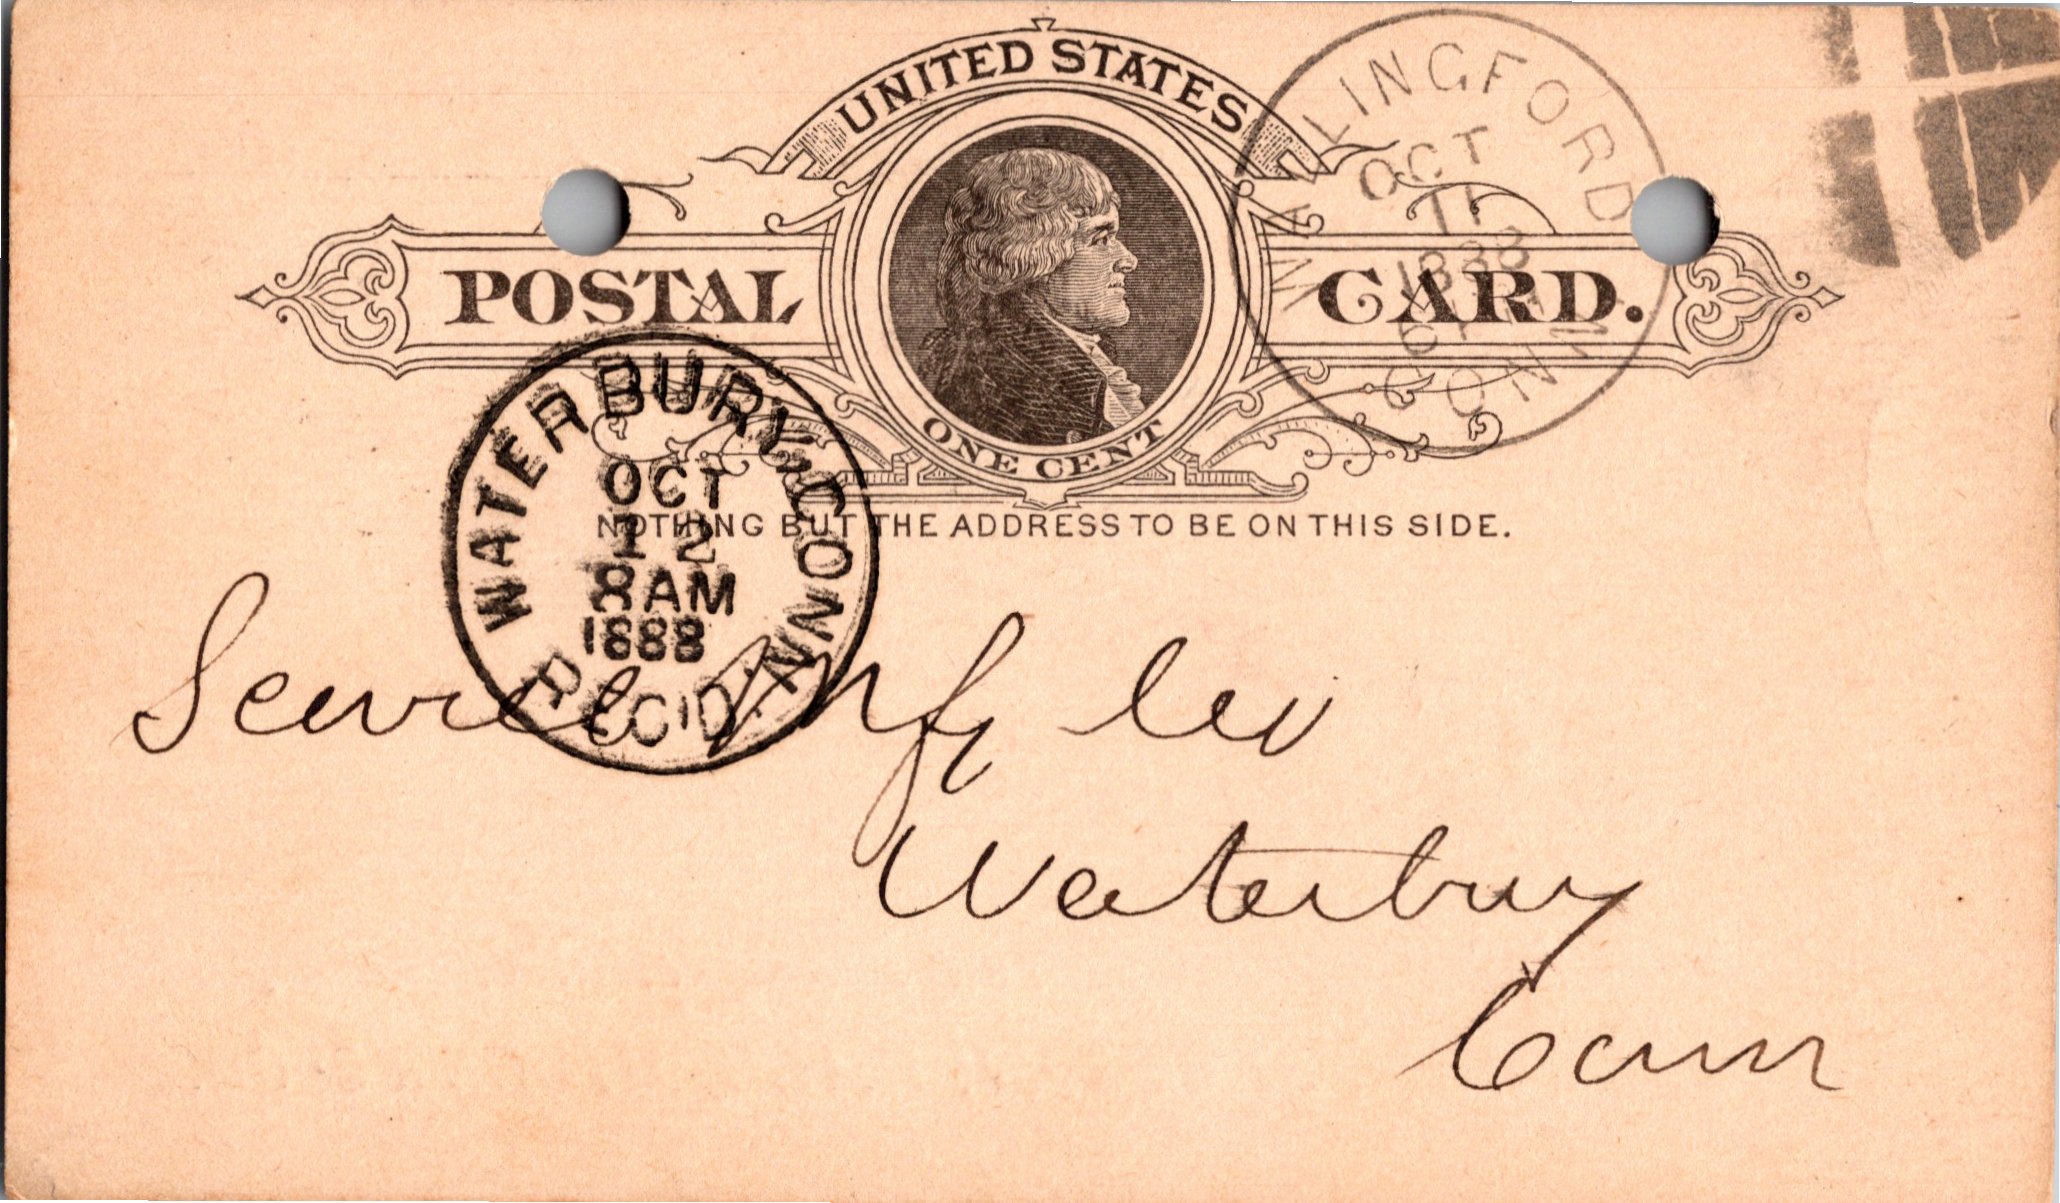 UNITED STATES
POSTAL CARD.
ONE CENT
NOTHING BUT THE ADDRESS TO BE ON THIS SIDE.
WALLINGFORD CONN
OCT
11
1888
WATERBURY, CONN.
OCT
12
8 AM
1888
REC'D.
Mfg Co
Waterbury
Conn